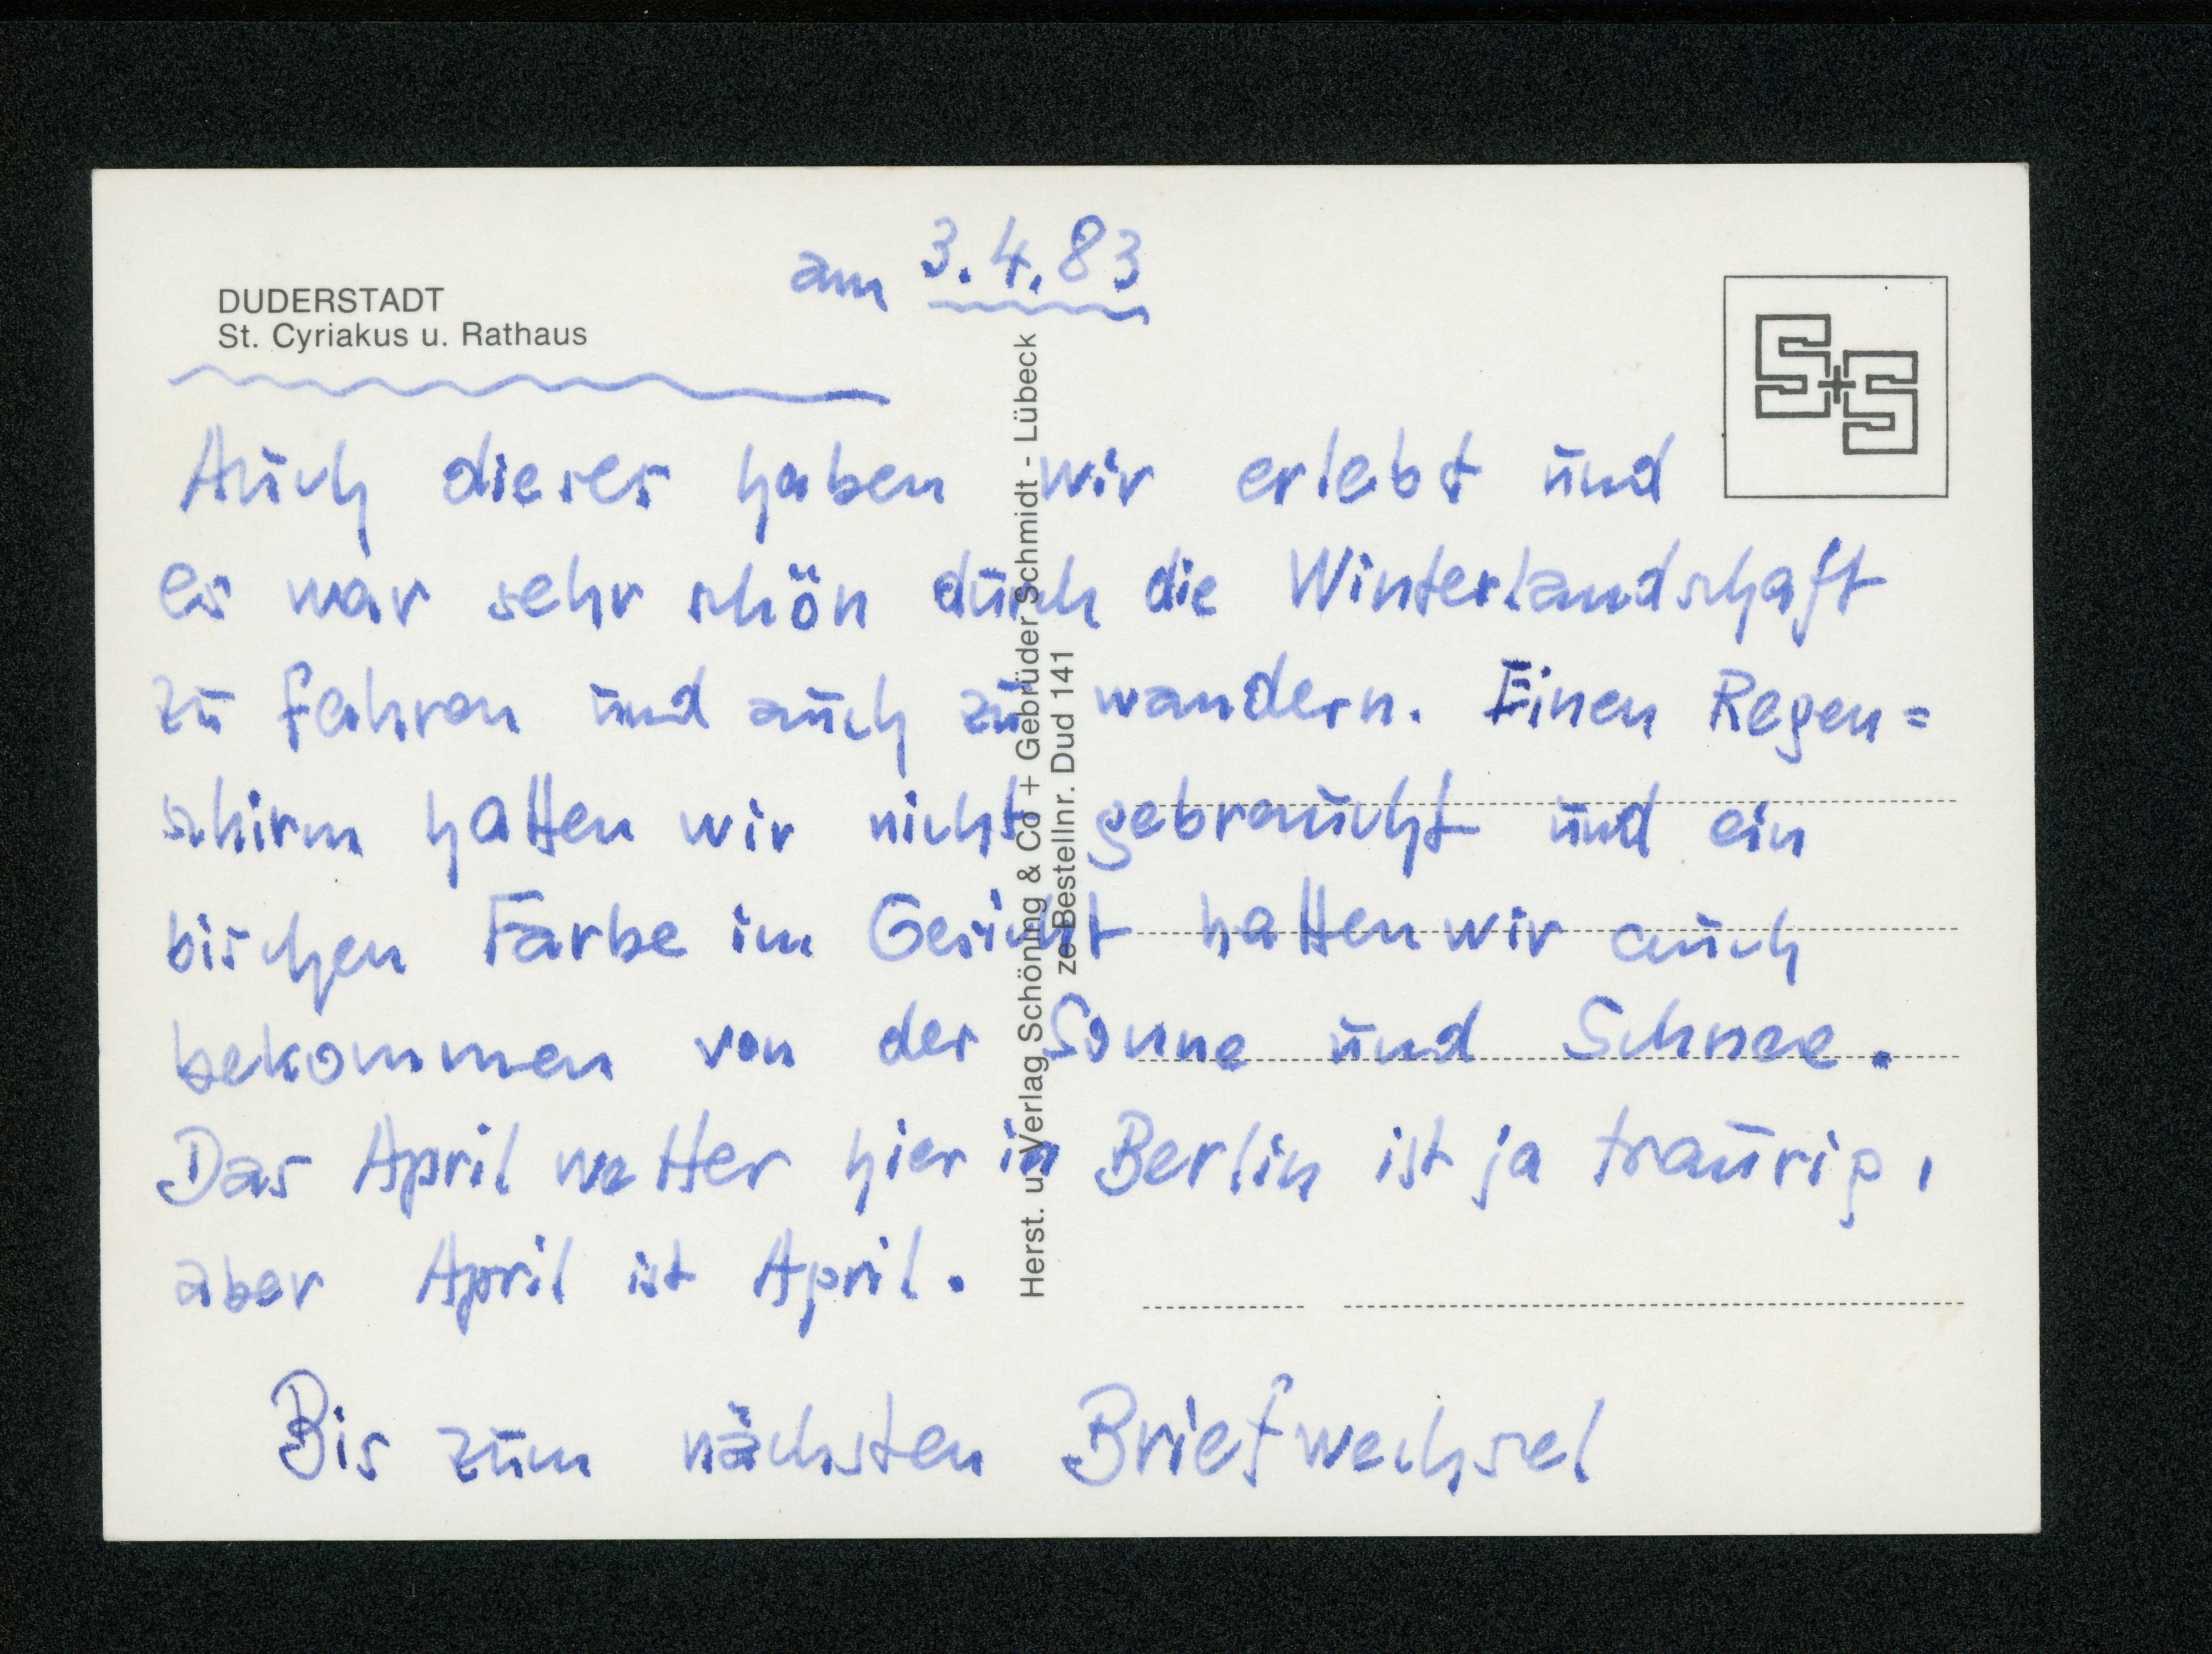 am 3.4.83
DUDERSTADT
St. Cyriakus u. Rathaus
S+S
Auch dieses haben wir erlebt und
es war sehr schön durch die Winterlandschaft
zu fahren und auch zu wandern. Einen Regen=
schirm hatten wir nicht gebraucht und ein
bischen Farbe im Gesicht hatten wir auch
bekommen von der Sonne und Schnee.
Das April wetter hier in Berlin ist ja traurig,
aber April ist April.
Bis zum nächsten Briefwechsel
Herst. u. Verlag Schöning & Co + Gebrüder Schmidt - Lübeck
ze Bestellnr. Dud 141